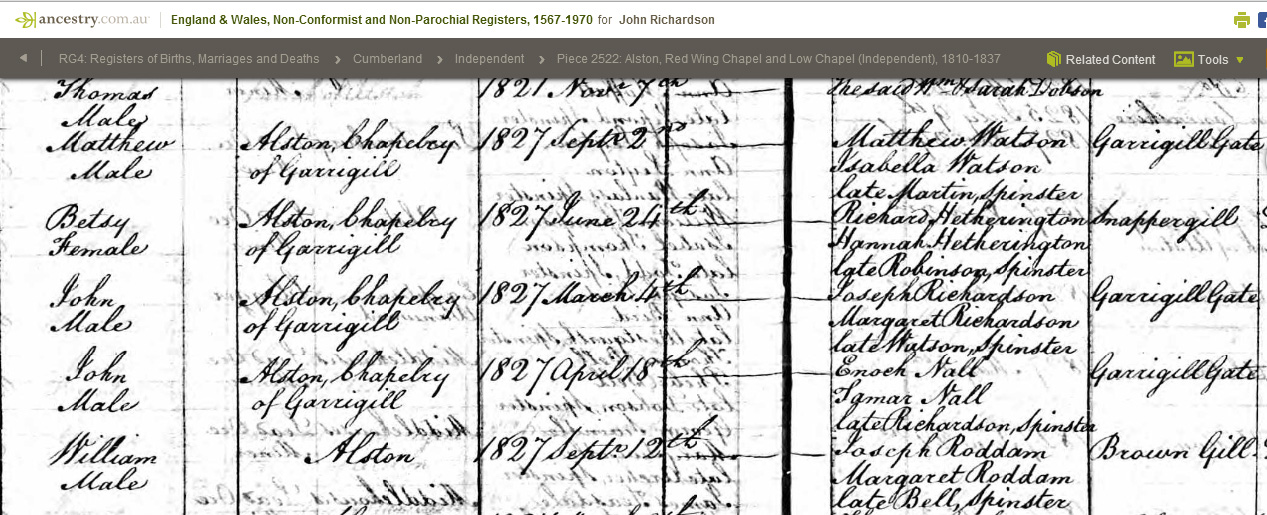 ancestry.com.au England & Wales, Non-Conformist and Non-Parochial Registers, 1567-1970 for John Richardson
RG4: Registers of Births, Marriages and Deaths > Cumberland > Independent > Piece 2522: Alston, Red Wing Chapel and Low Chapel (Independent), 1810-1837 Related Content Tools
Thomas 1821 Novr 7th The said Wm & Sarah Dobson
Male
Matthew Alston, Chapelry 1827 Septr 2nd Matthew Watson Garrigill Gate
Male of Garrigill Isabella Watson
late Martin, Spinster
Betsy Alston, Chapelry 1827 June 24th Richard Hetherington Snappergill
Female of Garrigill Hannah Hetherington
late Robinson, Spinster
John Alston, Chapelry 1827 March 4th Joseph Richardson Garrigill Gate
Male of Garrigill Margaret Richardson
late Watson, Spinster
John Alston, Chapelry 1827 April 18th Enoch Nall Garrigill Gate
Male of Garrigill Tamar Nall
late Richardson, Spinster
William Alston 1827 Septr 12th Joseph Roddam Brown Gill
Male Margaret Roddam
late Bell, Spinster